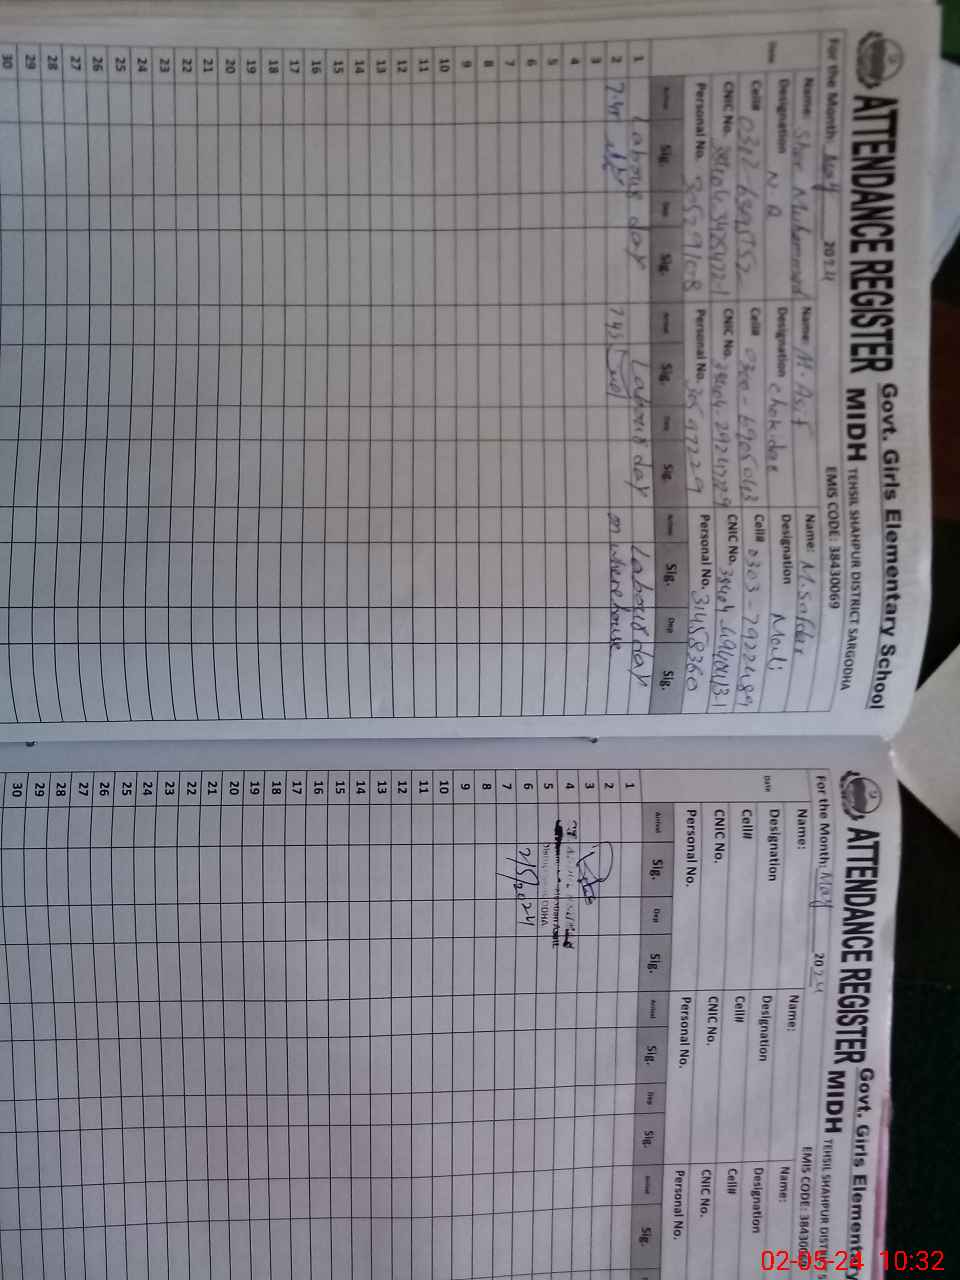 Govt. Girls Elementary School
ATTENDANCE REGISTER MIDH TEHSIL SHAHPUR DISTRICT SARGODHA
For the Month: May 2024 EMIS CODE: 38430069
Name: Sher Muhammad Name: M. Asif Name: M. Safdar
Date Designation N.Q Designation chokidar Designation Mali
Cell# Cell# 0300-6905043 Cell# 0303-7922489
CNIC No. CNIC No. CNIC No.
Personal No. Personal No. 30597229 Personal No. 31458360
Arrival Sig. Dep Sig. Arrival Sig. Dep Sig. Arrival Sig. Dep Sig.
1 Labour day Labour day Labour day
2 7.45 7 45 on where house
3
4
5
6
7
8
9
10
11
12
13
14
15
16
17
18
19
20
21
22
23
24
25
26
27
28
29
30
Govt. Girls Elementary
ATTENDANCE REGISTER MIDH TEHSIL SHAHPUR DISTRICT
For the Month: May 2024 EMIS CODE: 3843006
Name: Name: Name:
Date Designation Designation Designation
Cell# Cell# Cell#
CNIC No. CNIC No. CNIC No.
Personal No. Personal No. Personal No.
Arrival Sig. Dep Sig. Arrival Sig. Dep Sig. Arrival Sig.
1
2
3
4
5
6 2/5/2024
7
8
9
10
11
12
13
14
15
16
17
18
19
20
21
22
23
24
25
26
27
28
29
30
02-05-24 10:32